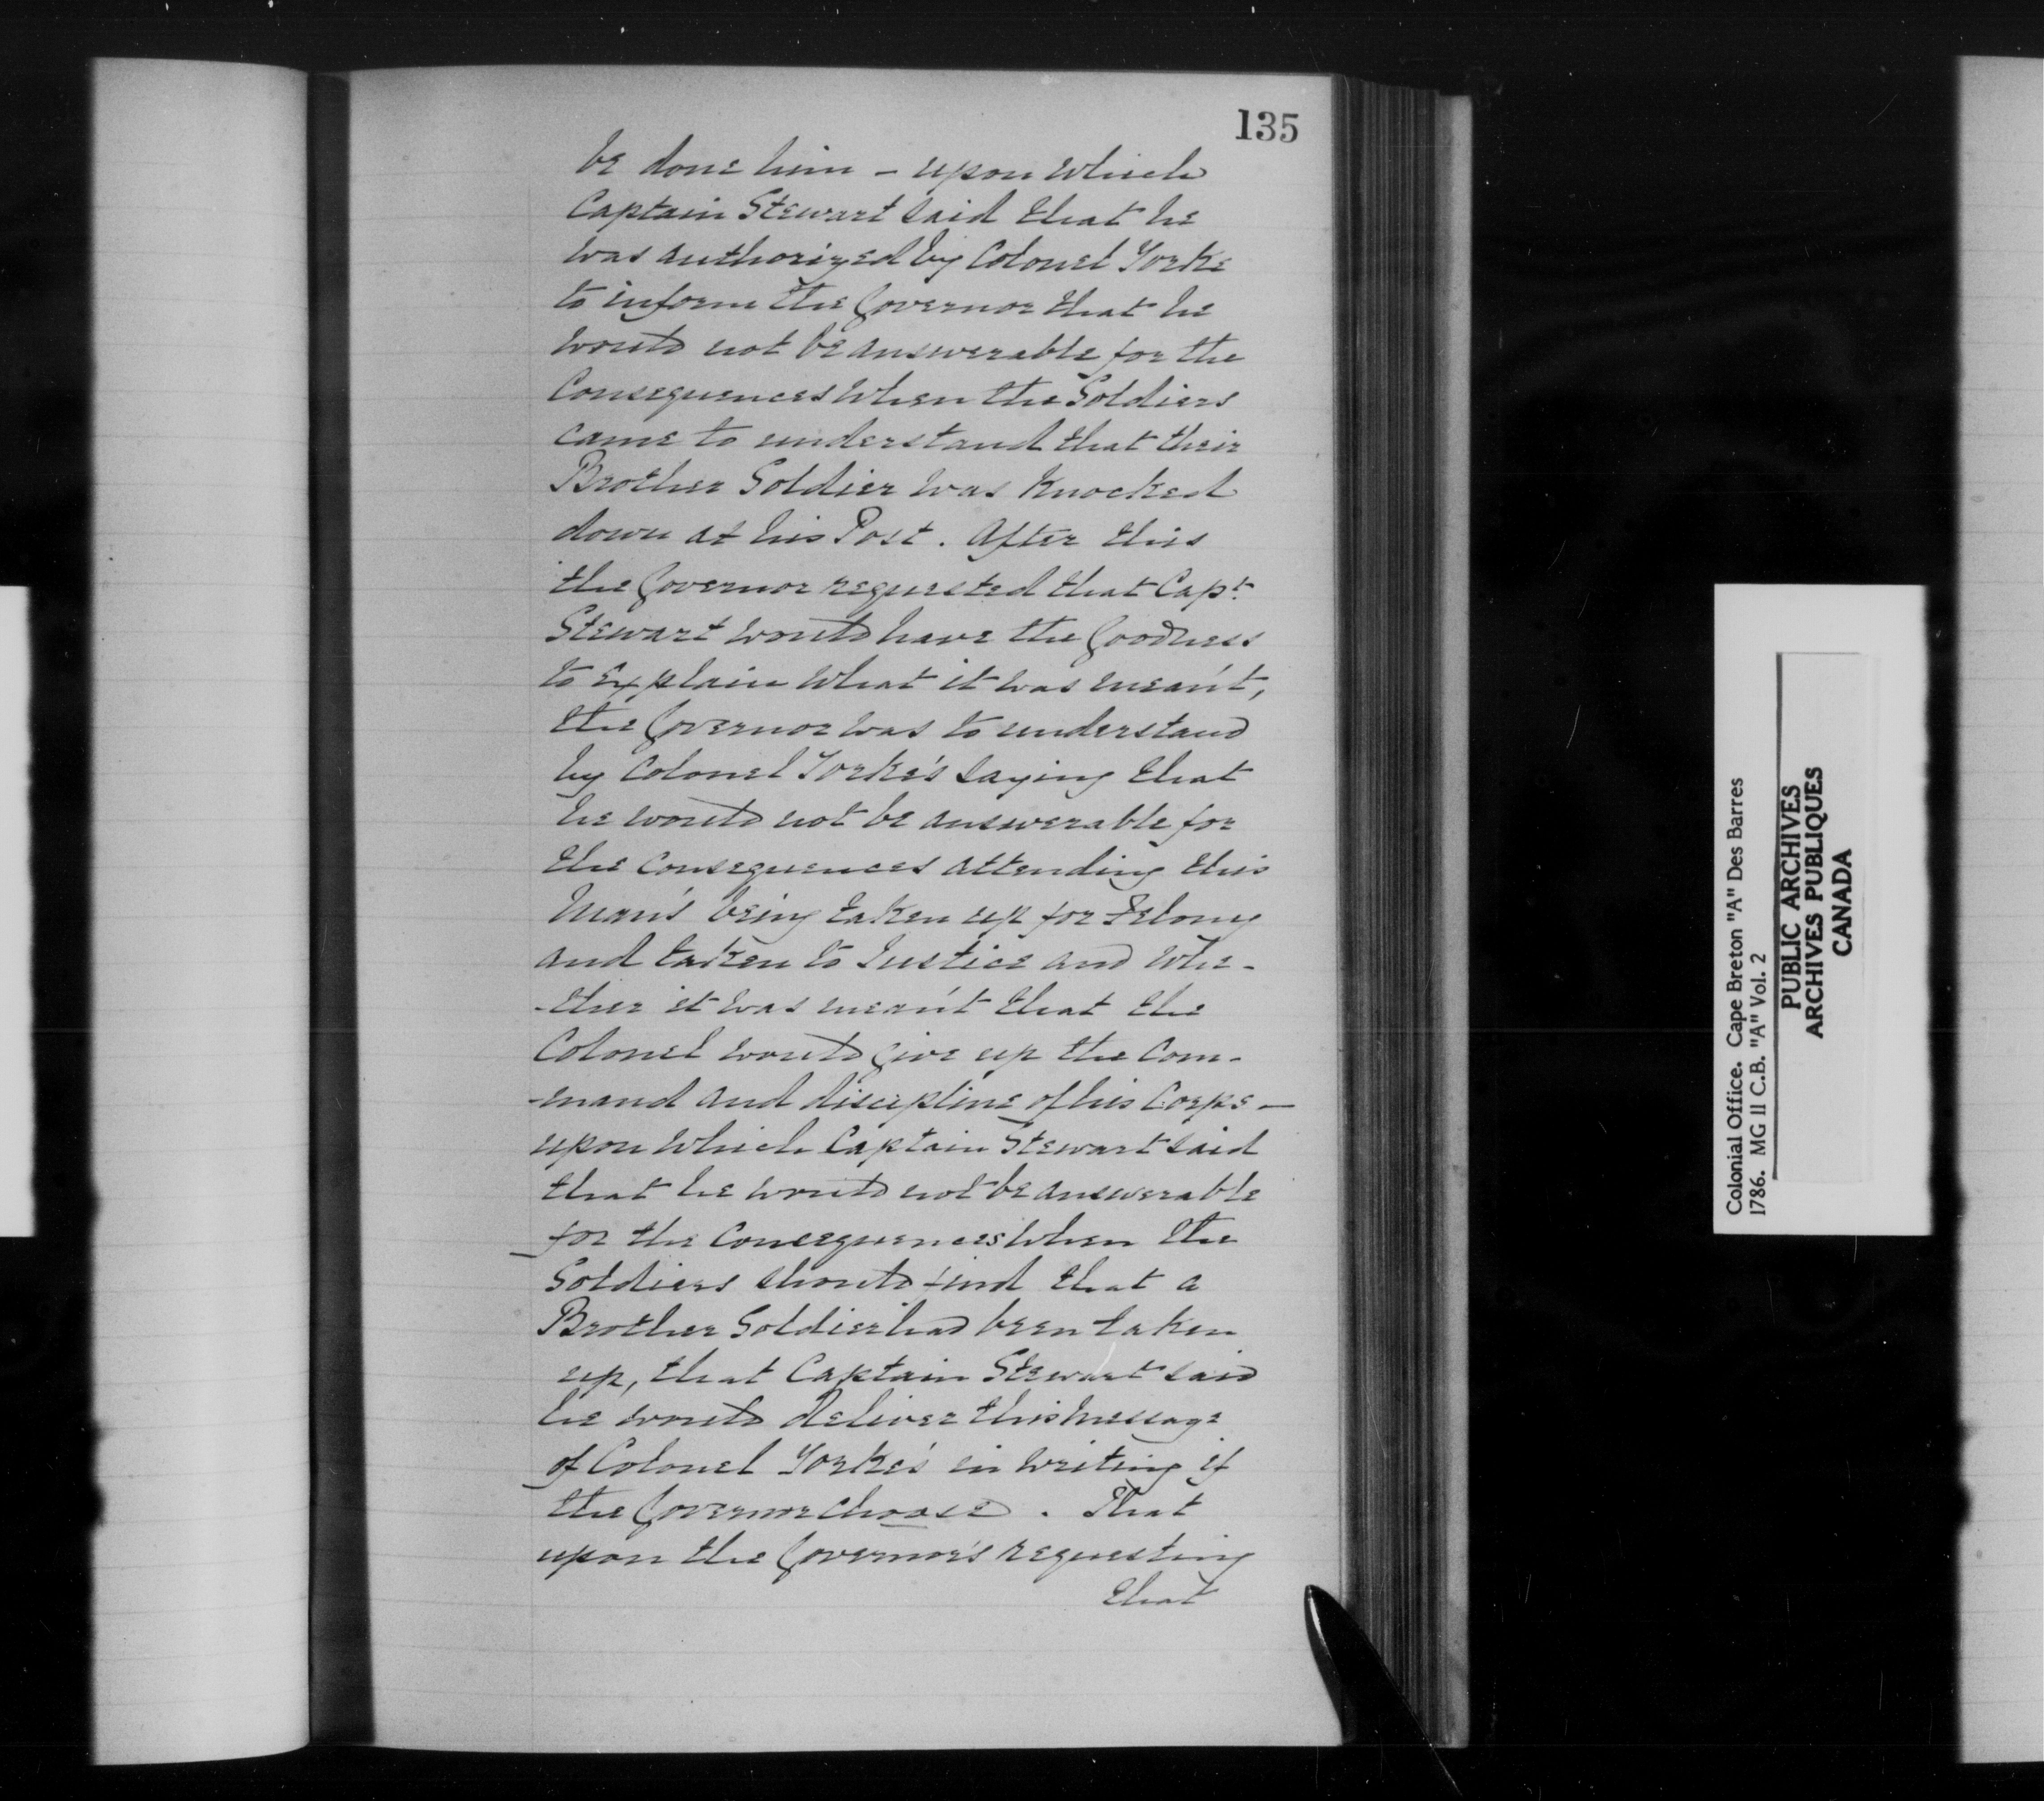 135
be done him - upon which
Captain Stewart said that he
was authorized by Colonel Yorke
to inform the Governor that he
would not be answerable for the
Consequences when the Soldiers
came to understand that their
Brother Soldier was Knocked
down at his Post. After this
the Governor requested that Capt.
Stewart would have the Goodness
to explain what it was mean't,
the Governor was to understand
by Colonel Yorke's saying that
he would not be answerable for
the Consequences attending this
Man's being taken up for Felony
and taken to Justice and whe-
-ther it was mean't that the
Colonel would give up the Com-
-mand and discipline of his Corps -
upon which Captain Stewart said
that he would not be answerable
for the Consequences when the
Soldiers should find that a
Brother Soldier had been taken
up, that Captain Stewart said
he would deliver this message
of Colonel Yorke's in writing if
the Governor choose. That
upon the Governor's requesting
that
Colonial Office. Cape Breton "A" Des Barres
1786. MG 11 C.B. "A" Vol. 2
PUBLIC ARCHIVES
ARCHIVES PUBLIQUES
CANADA